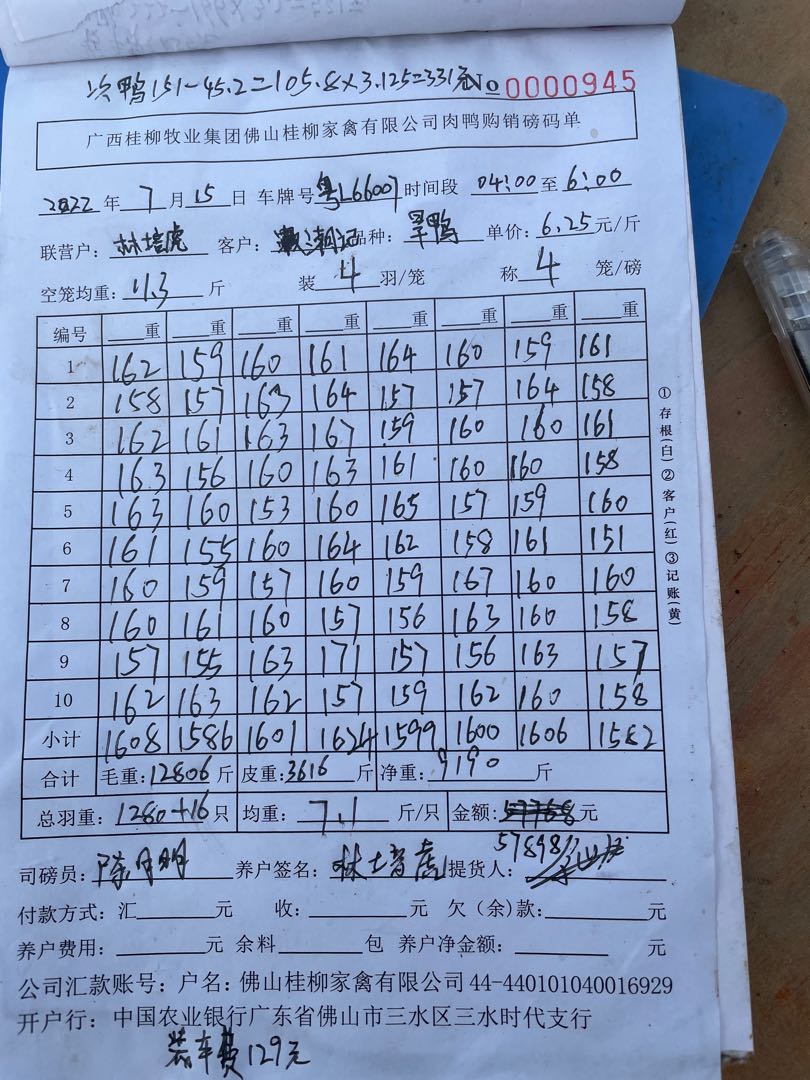 次鸭151-45.2=105.8×3.125=331元 No 0000945
广西桂柳牧业集团佛山桂柳家禽有限公司肉鸭购销磅码单
2022年7月15日 车牌号粤L66007时间段 04:00至6:00
联营户：林培虎 客户：潮记品种：旱鸭 单价：6.25元/斤
空笼均重：11.3斤 装4羽/笼 称4笼/磅
编号 重 重 重 重 重 重 重 重
1 162 159 160 161 164 160 159 161
2 158 157 163 164 157 157 164 158
3 162 161 163 167 159 160 160 161
4 163 156 160 163 161 160 160 158
5 163 160 153 160 165 157 159 160
6 161 155 160 164 162 158 161 151
7 160 159 157 160 159 167 160 160
8 160 161 160 157 156 163 160 158
9 157 155 163 171 157 156 163 157
10 162 163 162 157 159 162 160 158
小计 1608 1586 1601 1624 1599 1600 1606 1582
合计 毛重：12806斤 皮重：3616斤 净重：9190斤
总羽重：1280+16只 均重：7.1斤/只 金额：57768元
57898
司磅员：陈月明 养户签名：林培虎 提货人：
付款方式：汇 元 收： 元 欠（余）款： 元
养户费用： 元 余料 包 养户净金额： 元
公司汇款账号：户名：佛山桂柳家禽有限公司44-440101040016929
开户行：中国农业银行广东省佛山市三水区三水时代支行
装车费129元
①存根(白)②客户(红)③记账(黄)